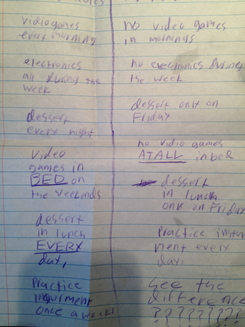 video games
every morning
electronics
all during the
week
dessert
every night
video
games in
BED on
the weekends
dessert
in lunch
EVERY
day,
Practice
insturment
once a week!
no video games
in mornings
no electronics during
the week
dessert only on
Friday
no video games
ATALL in beD
dessert
in lunch
one on Friday
Practice instu
ment every
day,
See the
difference
????????!